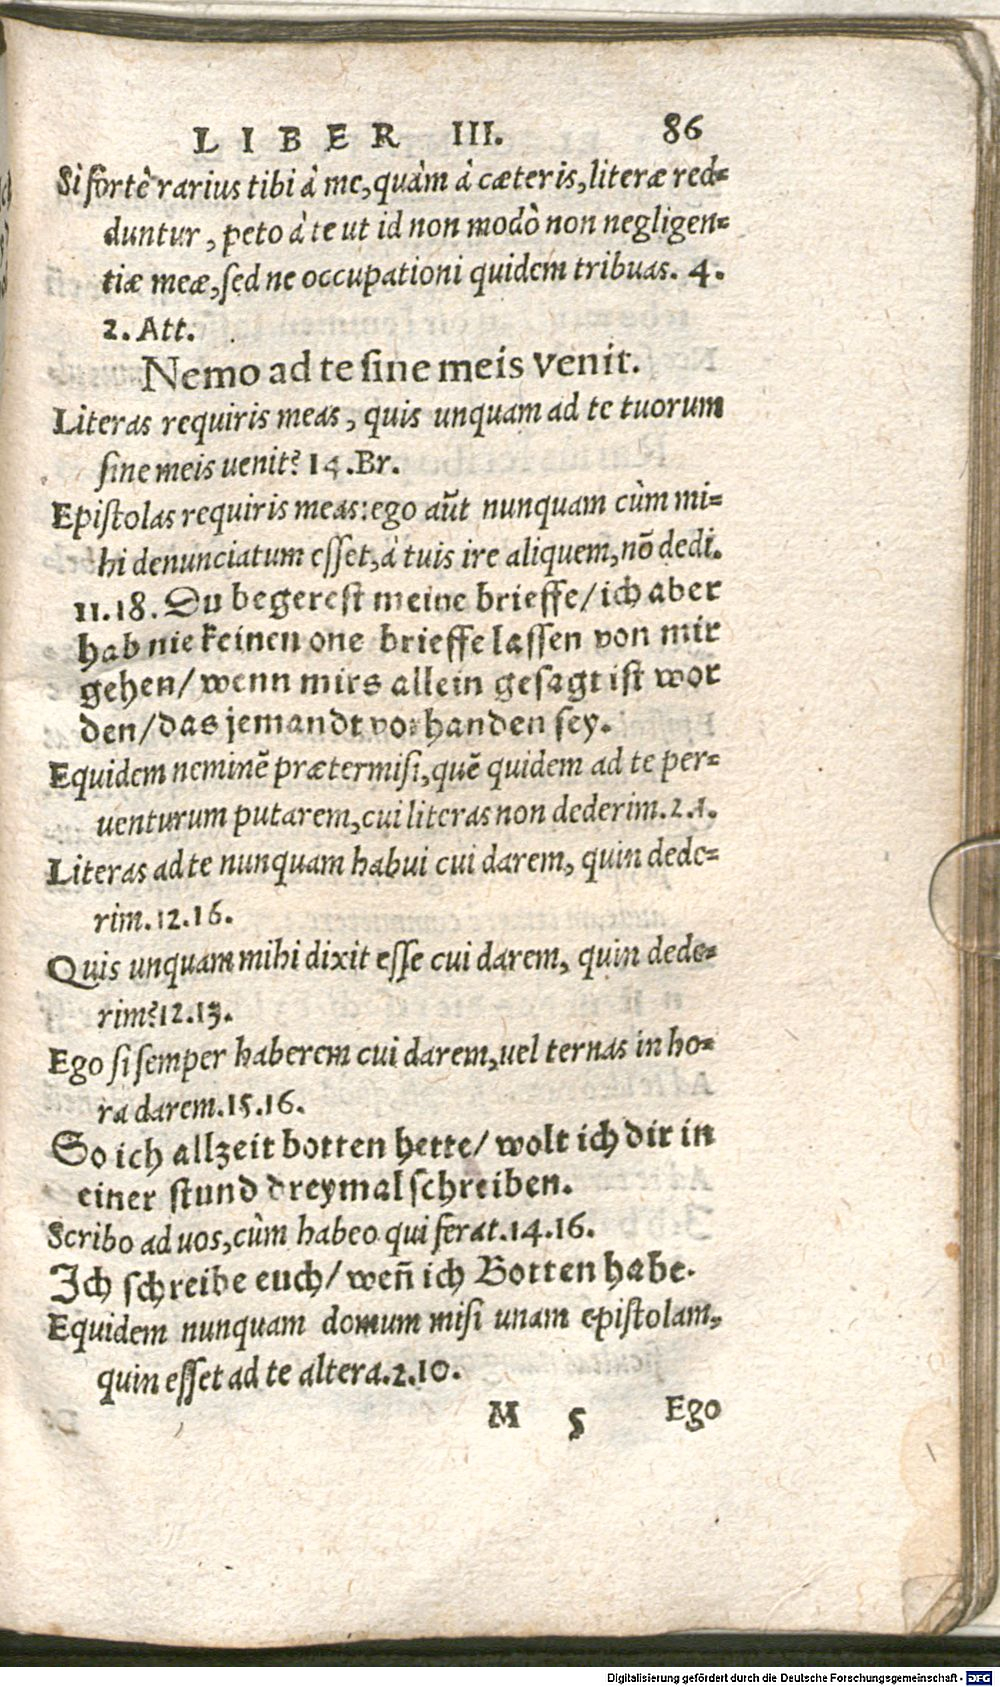 LIBER III. 86
Si fortè rarius tibi à me, quàm à cæteris, literæ red-
duntur, peto à te ut id non modò non negligen-
tiæ meæ, sed ne occupationi quidem tribuas. 4.
2. Att.
Nemo ad te sine meis venit.
Literas requiris meas, quis unquam ad te tuorum
sine meis uenit? 14. Br.
Epistolas requiris meas: ego aūt nunquam cùm mi-
hi denunciatum esset, à tuis ire aliquem, nō dedi.
11.18. Du begerest meine brieffe/ ich aber
hab nie keinen one brieffe lassen von mir
gehen/ wenn mirs allein gesagt ist wor
den/ das jemandt vorhanden sey.
Equidem neminē prætermisi, quē quidem ad te per-
uenturum putarem, cui literas non dederim. 2.1.
Literas ad te nunquam habui cui darem, quin dede-
rim. 12.16.
Quis unquam mihi dixit esse cui darem, quin dede-
rim? 12.13.
Ego si semper haberem cui darem, uel ternas in ho-
ra darem. 15.16.
So ich allzeit botten hette/ wolt ich dir in
einer stund dreymal schreiben.
Scribo ad uos, cùm habeo qui ferat. 14.16.
Ich schreibe euch/ weñ ich Botten habe.
Equidem nunquam domum misi unam epistolam,
quin esset ad te altera. 2.10.
M 5 Ego
Digitalisierung gefördert durch die Deutsche Forschungsgemeinschaft - DFG